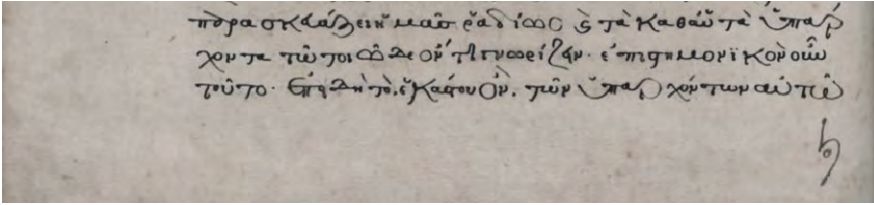 παρασκευάζειν ἡμᾶς ῥαδίως καὶ τὰ καθ' αὑτὰ ὑπάρ
χοντα τῶ τοιῶδε ὄντι γνωρίζειν· ἐπιστημονικὸν οὖν
τοῦτο· ἐπειδὴ τὸ, ἕκαστον ὂν, τῶν ὑπαρχόντων αὐτῶ